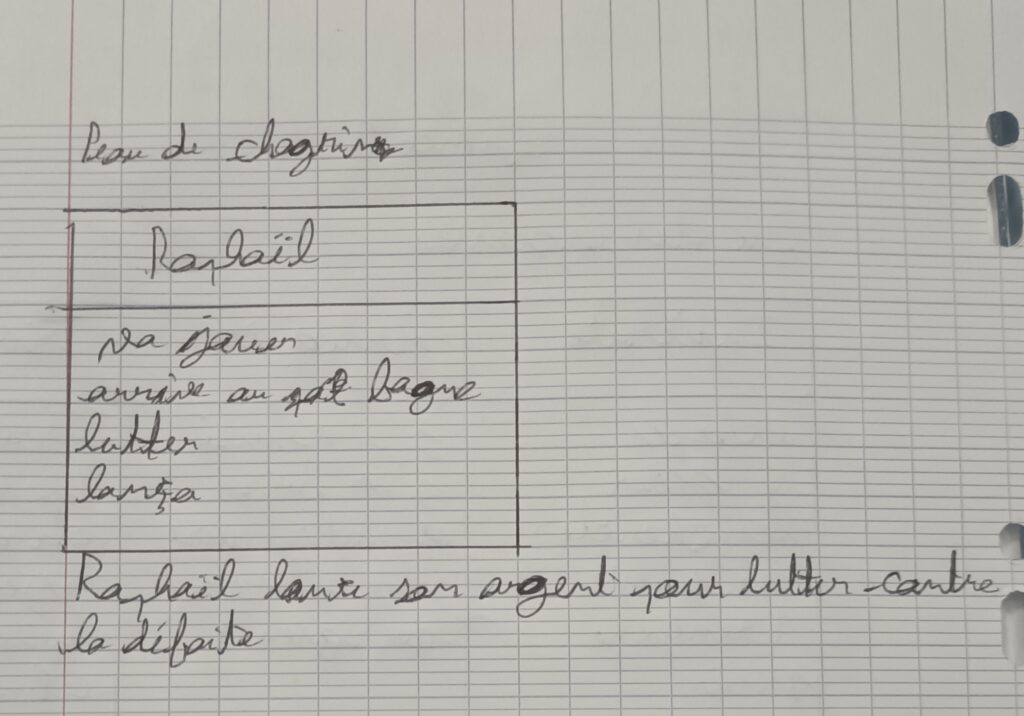 Peau de chagrin
Raphaël
va jouer
arrive au bagne
lutter
lança
Raphaël lance son argent pour lutter contre
la défaite